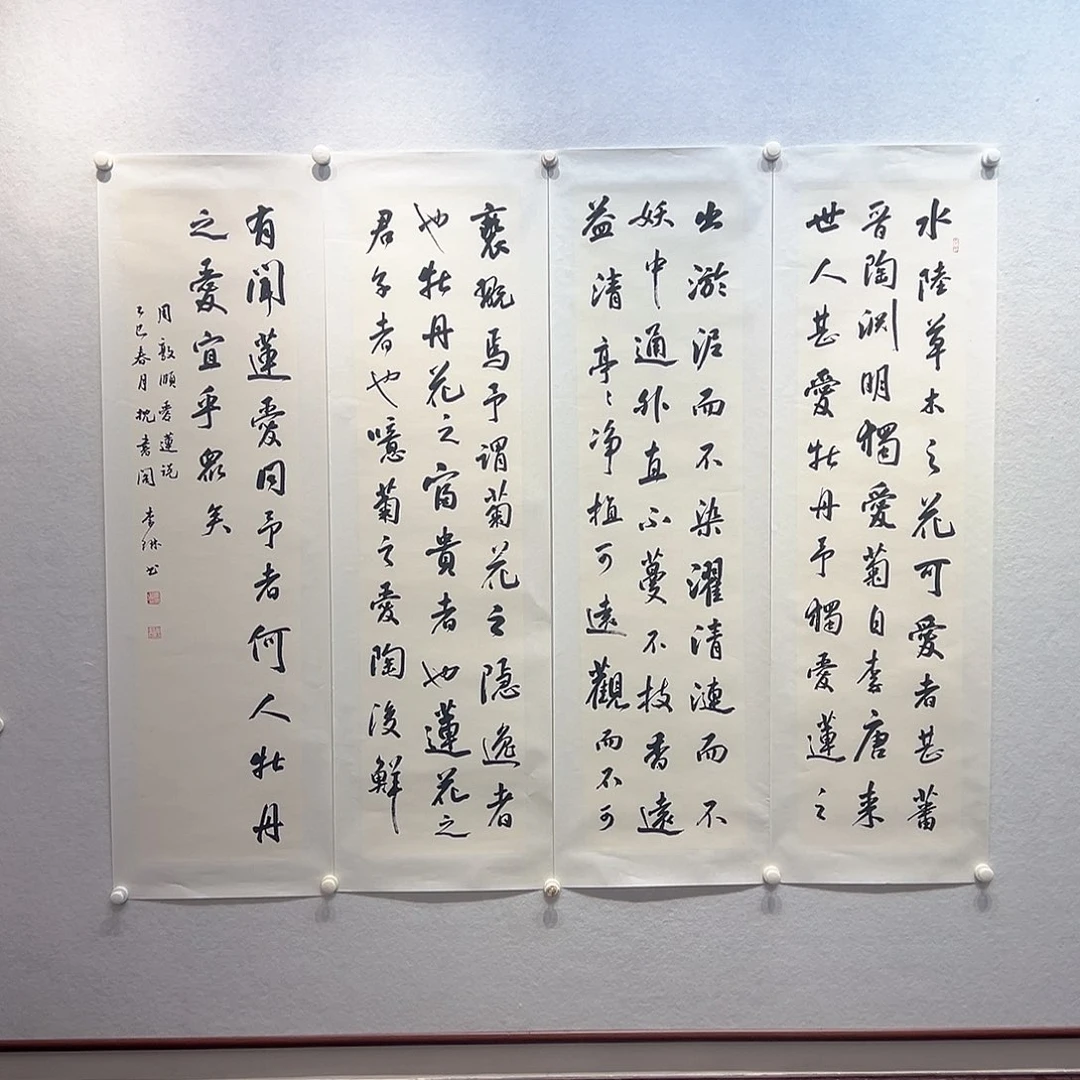 水陸草木之花可愛者甚蕃
晋陶渊明獨愛菊自李唐来
世人甚愛牡丹予獨愛蓮之
出淤泥而不染濯清漣而不
妖中通外直不蔓不枝香遠
益清亭〻净植可遠觀而不可
褻翫焉予謂菊花之隐逸者
也牡丹花之富貴者也蓮花之
君子者也噫菊之愛陶後鮮
有聞蓮愛同予者何人牡丹
之愛宜乎眾矣
周敦頤爱蓮说
乙巳春月 書閣 李琳书